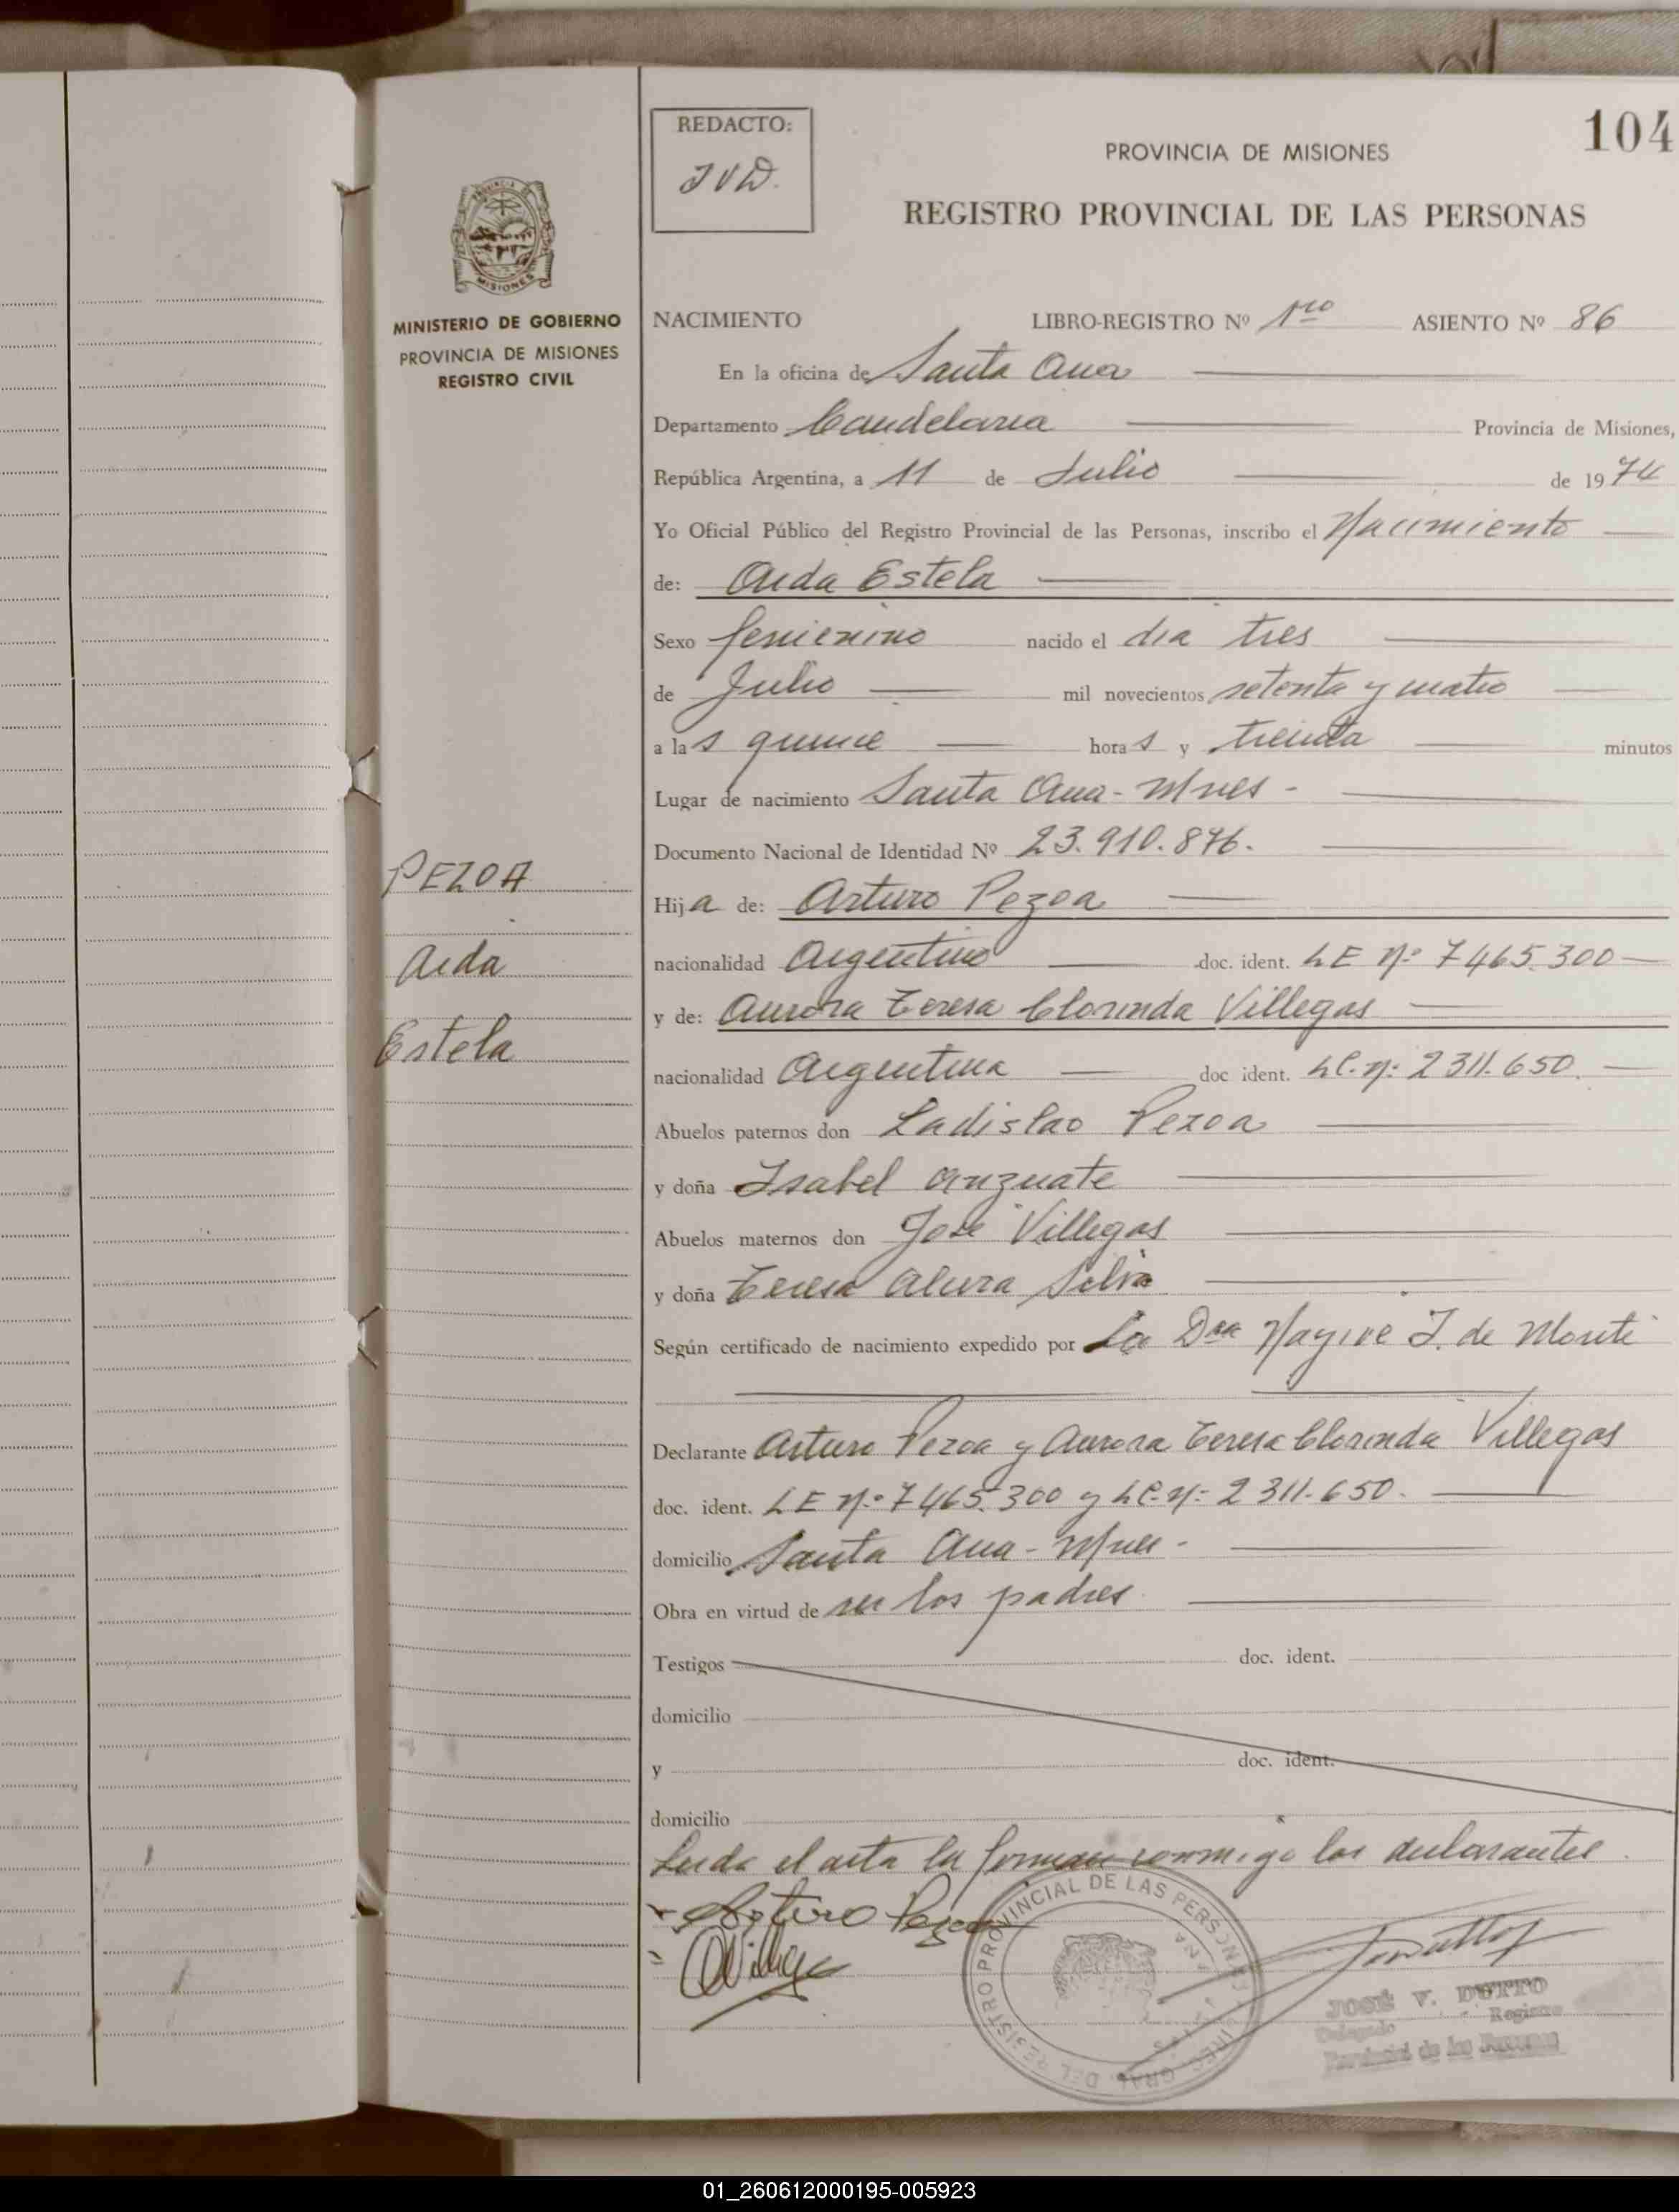 104
REDACTO:
JVD.
PROVINCIA DE MISIONES
REGISTRO PROVINCIAL DE LAS PERSONAS
MISIONES
MINISTERIO DE GOBIERNO
PROVINCIA DE MISIONES
REGISTRO CIVIL
NACIMIENTO LIBRO-REGISTRO Nº 1ro ASIENTO Nº 86
En la oficina de Santa Ana
Departamento Candelaria Provincia de Misiones,
República Argentina, a 11 de Julio de 1974
Yo Oficial Público del Registro Provincial de las Personas, inscribo el Nacimiento
de: Aida Estela
Sexo femenino nacido el dia tres
de Julio mil novecientos setenta y cuatro
a las quince horas y treinta minutos
Lugar de nacimiento Santa Ana - Mnes -
Documento Nacional de Identidad Nº 23.910.876.
PEZOA
Aida
Estela
Hija de: Arturo Pezoa
nacionalidad Argentino doc. ident. LE Nº 7465.300
y de: Aurora Teresa Clorinda Villegas
nacionalidad Argentina doc ident. LC. Nº 2311.650.
Abuelos paternos don Ladislao Pezoa
y doña Isabel Anzuate
Abuelos maternos don José Villegas
y doña Teresa Silva
Según certificado de nacimiento expedido por La Dra J. de Monti
Declarante Arturo Pezoa y Aurora Teresa Clorinda Villegas
doc. ident. LE Nº 7465.300 y LC. Nº 2311.650.
domicilio Santa Ana - Mnes -
Obra en virtud de ser los padres
Testigos doc. ident.
domicilio
y doc. ident.
domicilio
Leida el acta la firman conmigo los declarantes.
Arturo Pezoa
AVillegas
REGISTRO PROVINCIAL DE LAS PERSONAS
DIREC. GRAL. DEL
JOSÉ V. DUTTO
Delegado Registro
Provincial de las Personas
01_260612000195-005923